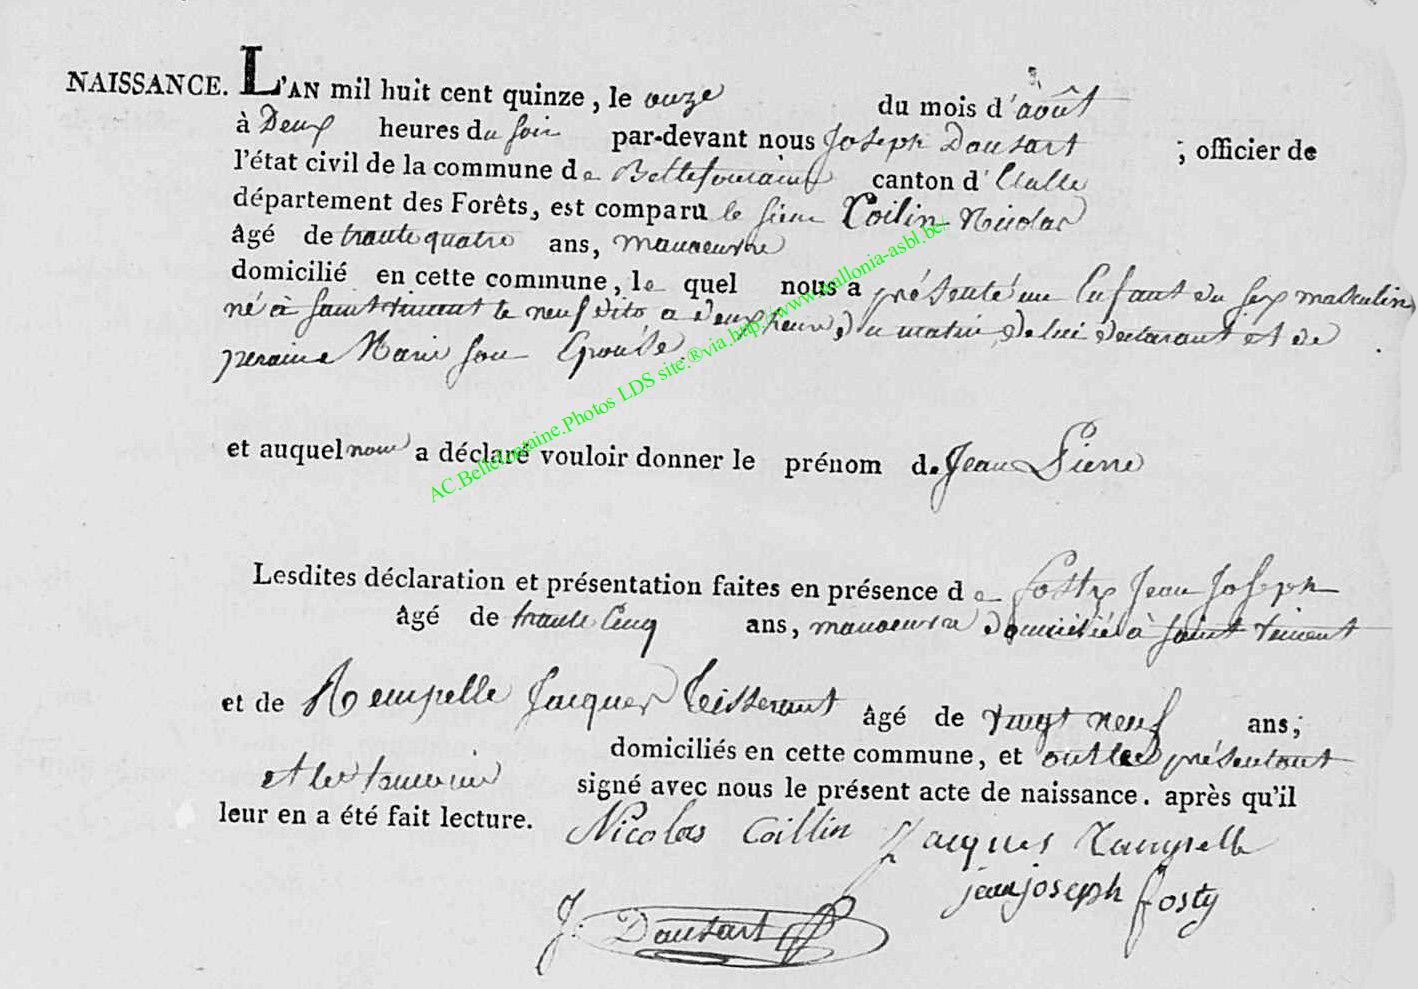 NAISSANCE. L'AN mil huit cent quinze, le onze du mois d'août
à Deux heures du soir par-devant nous Joseph Dausart ; officier de
l'état civil de la commune de Bellefontaine canton d'Etalle
département des Forêts, est comparu le sieur Coilin Nicolas
âgé de trante quatre ans, manoeuvre
domicilié en cette commune, le quel nous a présenté un Enfant du sex masculin
né à saint vincent le neuf dito a deux heures du matin de lui declarant et de
Marie son Epouse.
et auquel nous a déclaré vouloir donner le prénom de Jean Pierre
Lesdites déclaration et présentation faites en présence de fosty Jean Joseph
âgé de trante cinq ans, manoeuvre domicilié à saint vincent
et de Jacques tisserant âgé de vingt neuf ans;
domiciliés en cette commune, et ont les présentant
et les temoins signé avec nous le présent acte de naissance. après qu'il
leur en a été fait lecture. Nicolas Coillin Jacques
jean joseph fosty
J. Dausart
AC.Bellefontaine.Photos LDS site.®via.http://www.wallonia-asbl.be/